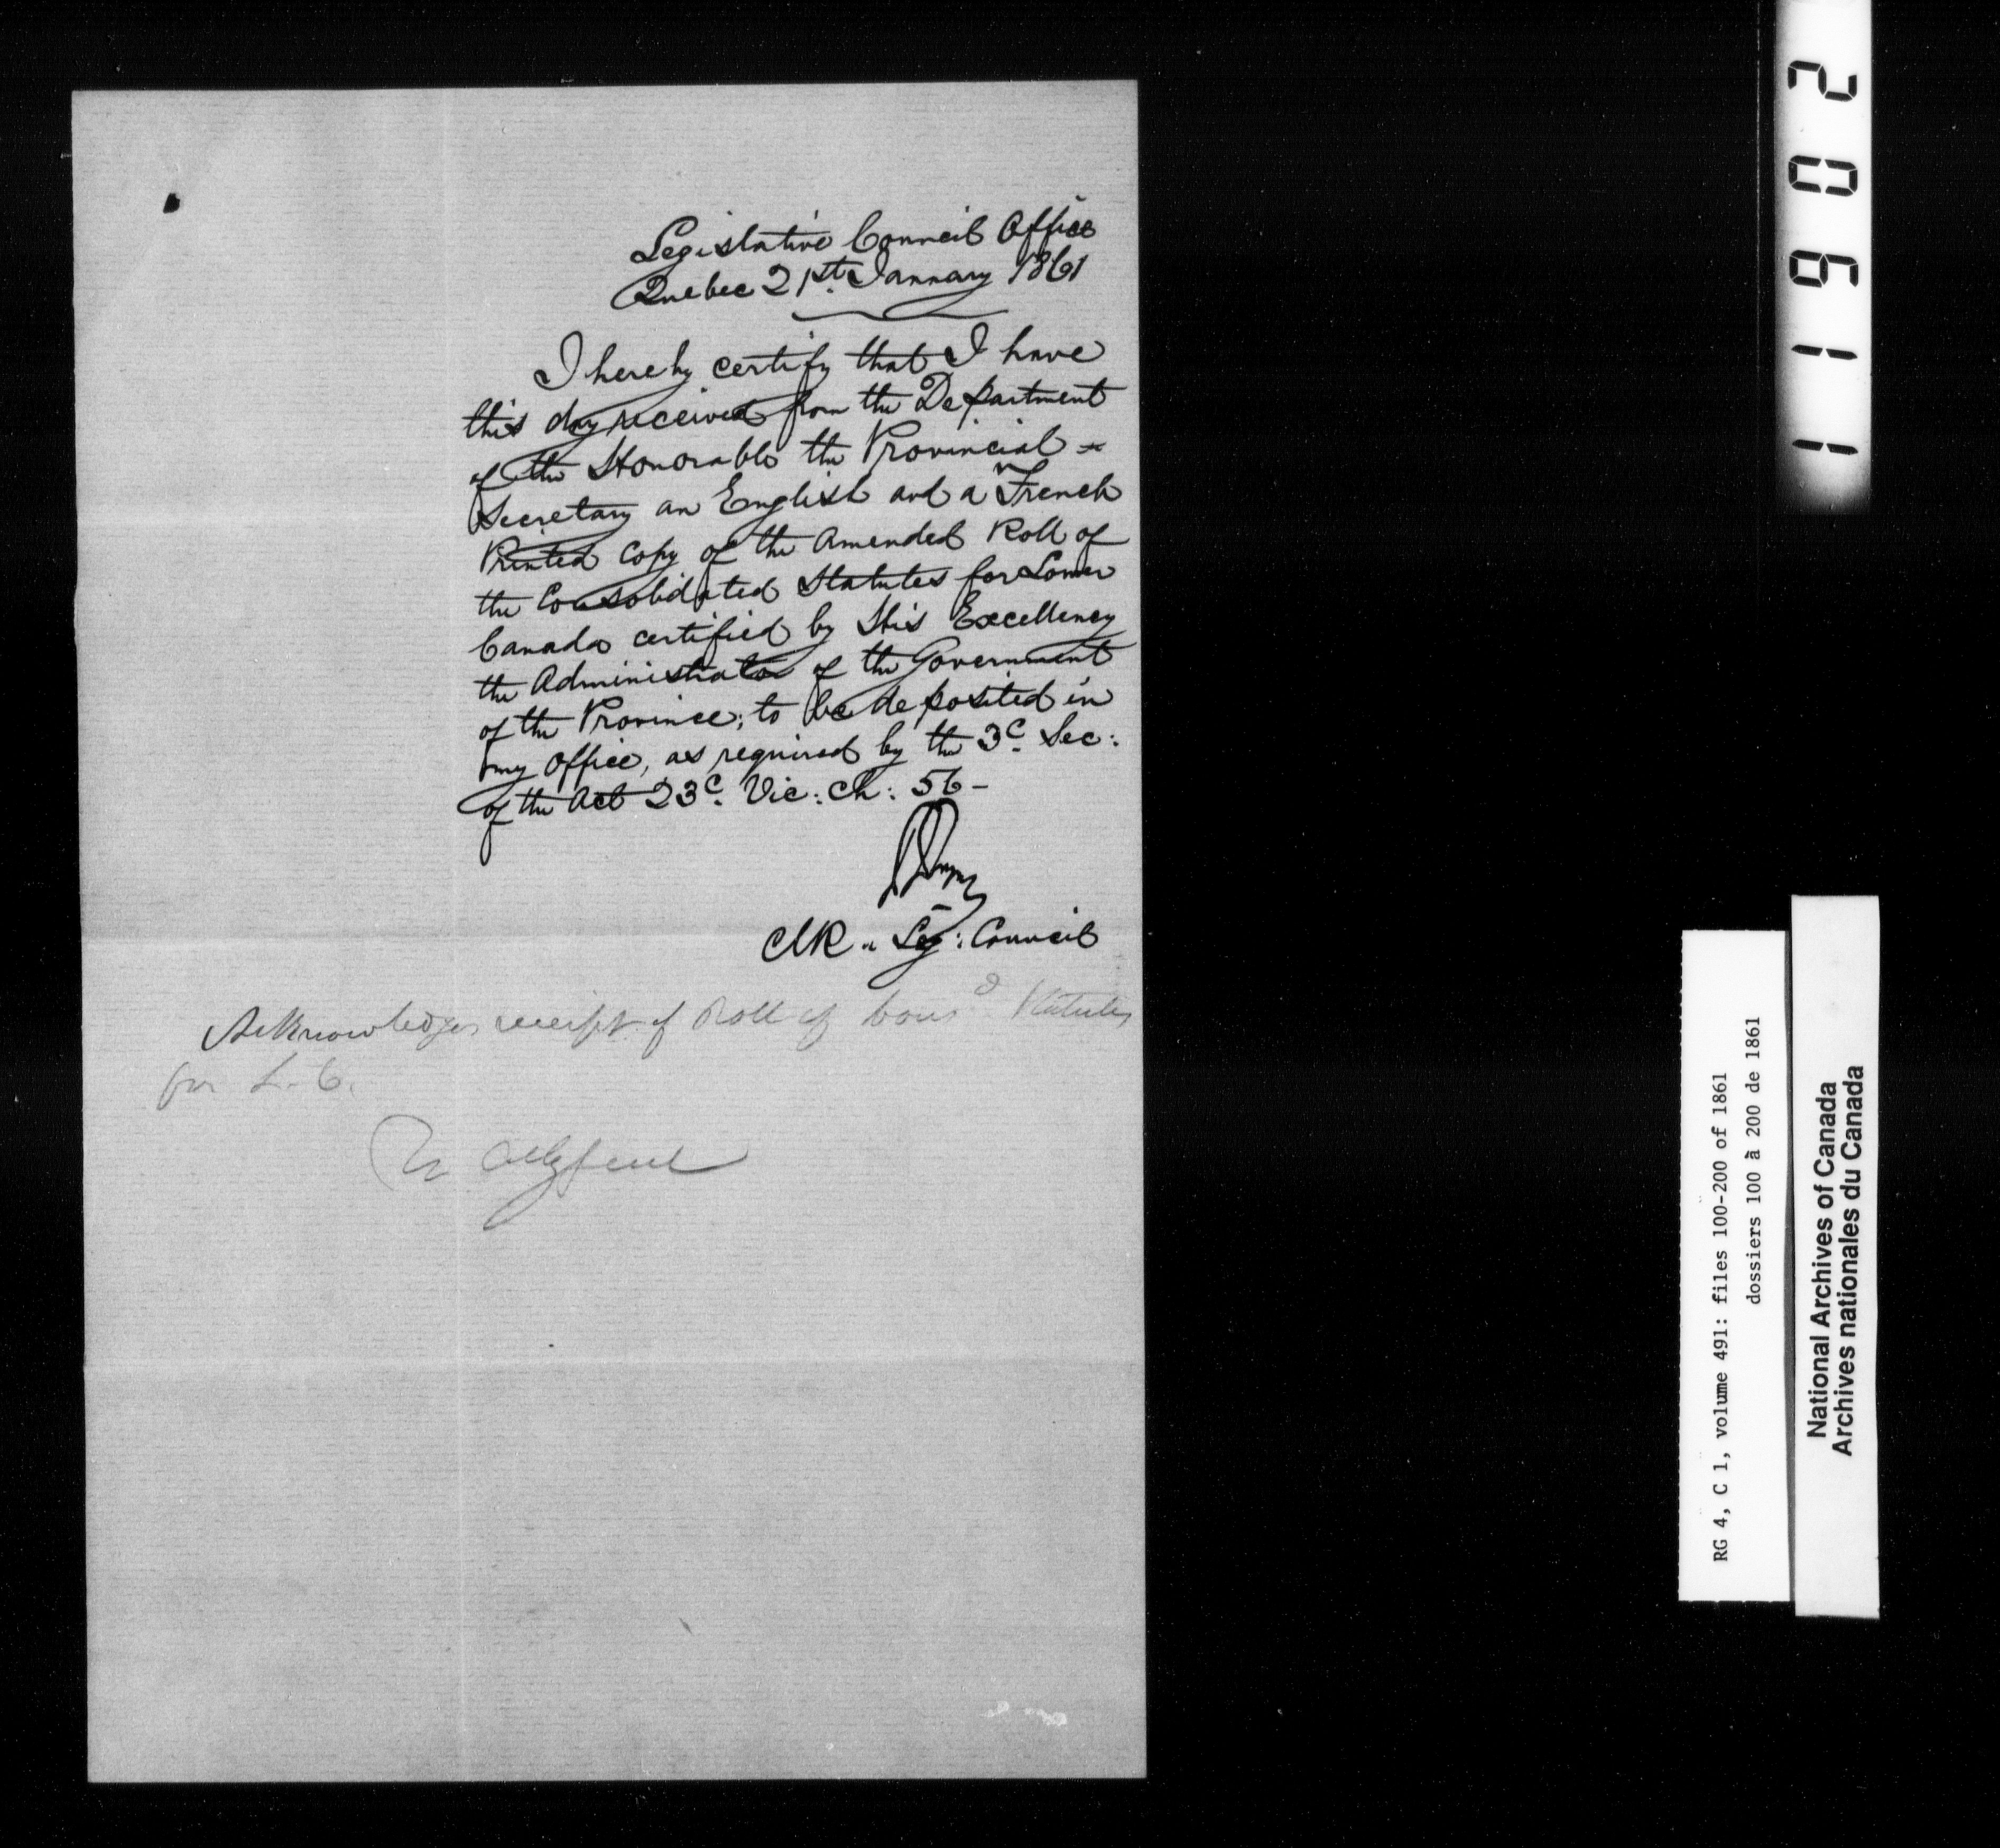 Legislative Council Office
Quebec 21st. January 1861
I hereby certify that I have
this day received from the Department
of the Honorable the Provincial -
Secretary an English and a French
Printed Copy of the Amended Roll of
the Consolidated Statutes for Lower
Canada certified by His Excellency
the Administrator of the Government
of the Province; to be deposited in
my Office, as required by the 3d. Sec:
of the Act 23d. Vic: Ch: 56 -
Clk " Leg: Council
Acknowledges receipt of Roll of Cons.d Statutes
for L. C.
11902
RG 4, C 1, volume 491: files 100-200 of 1861
dossiers 100 à 200 de 1861
National Archives of Canada
Archives nationales du Canada